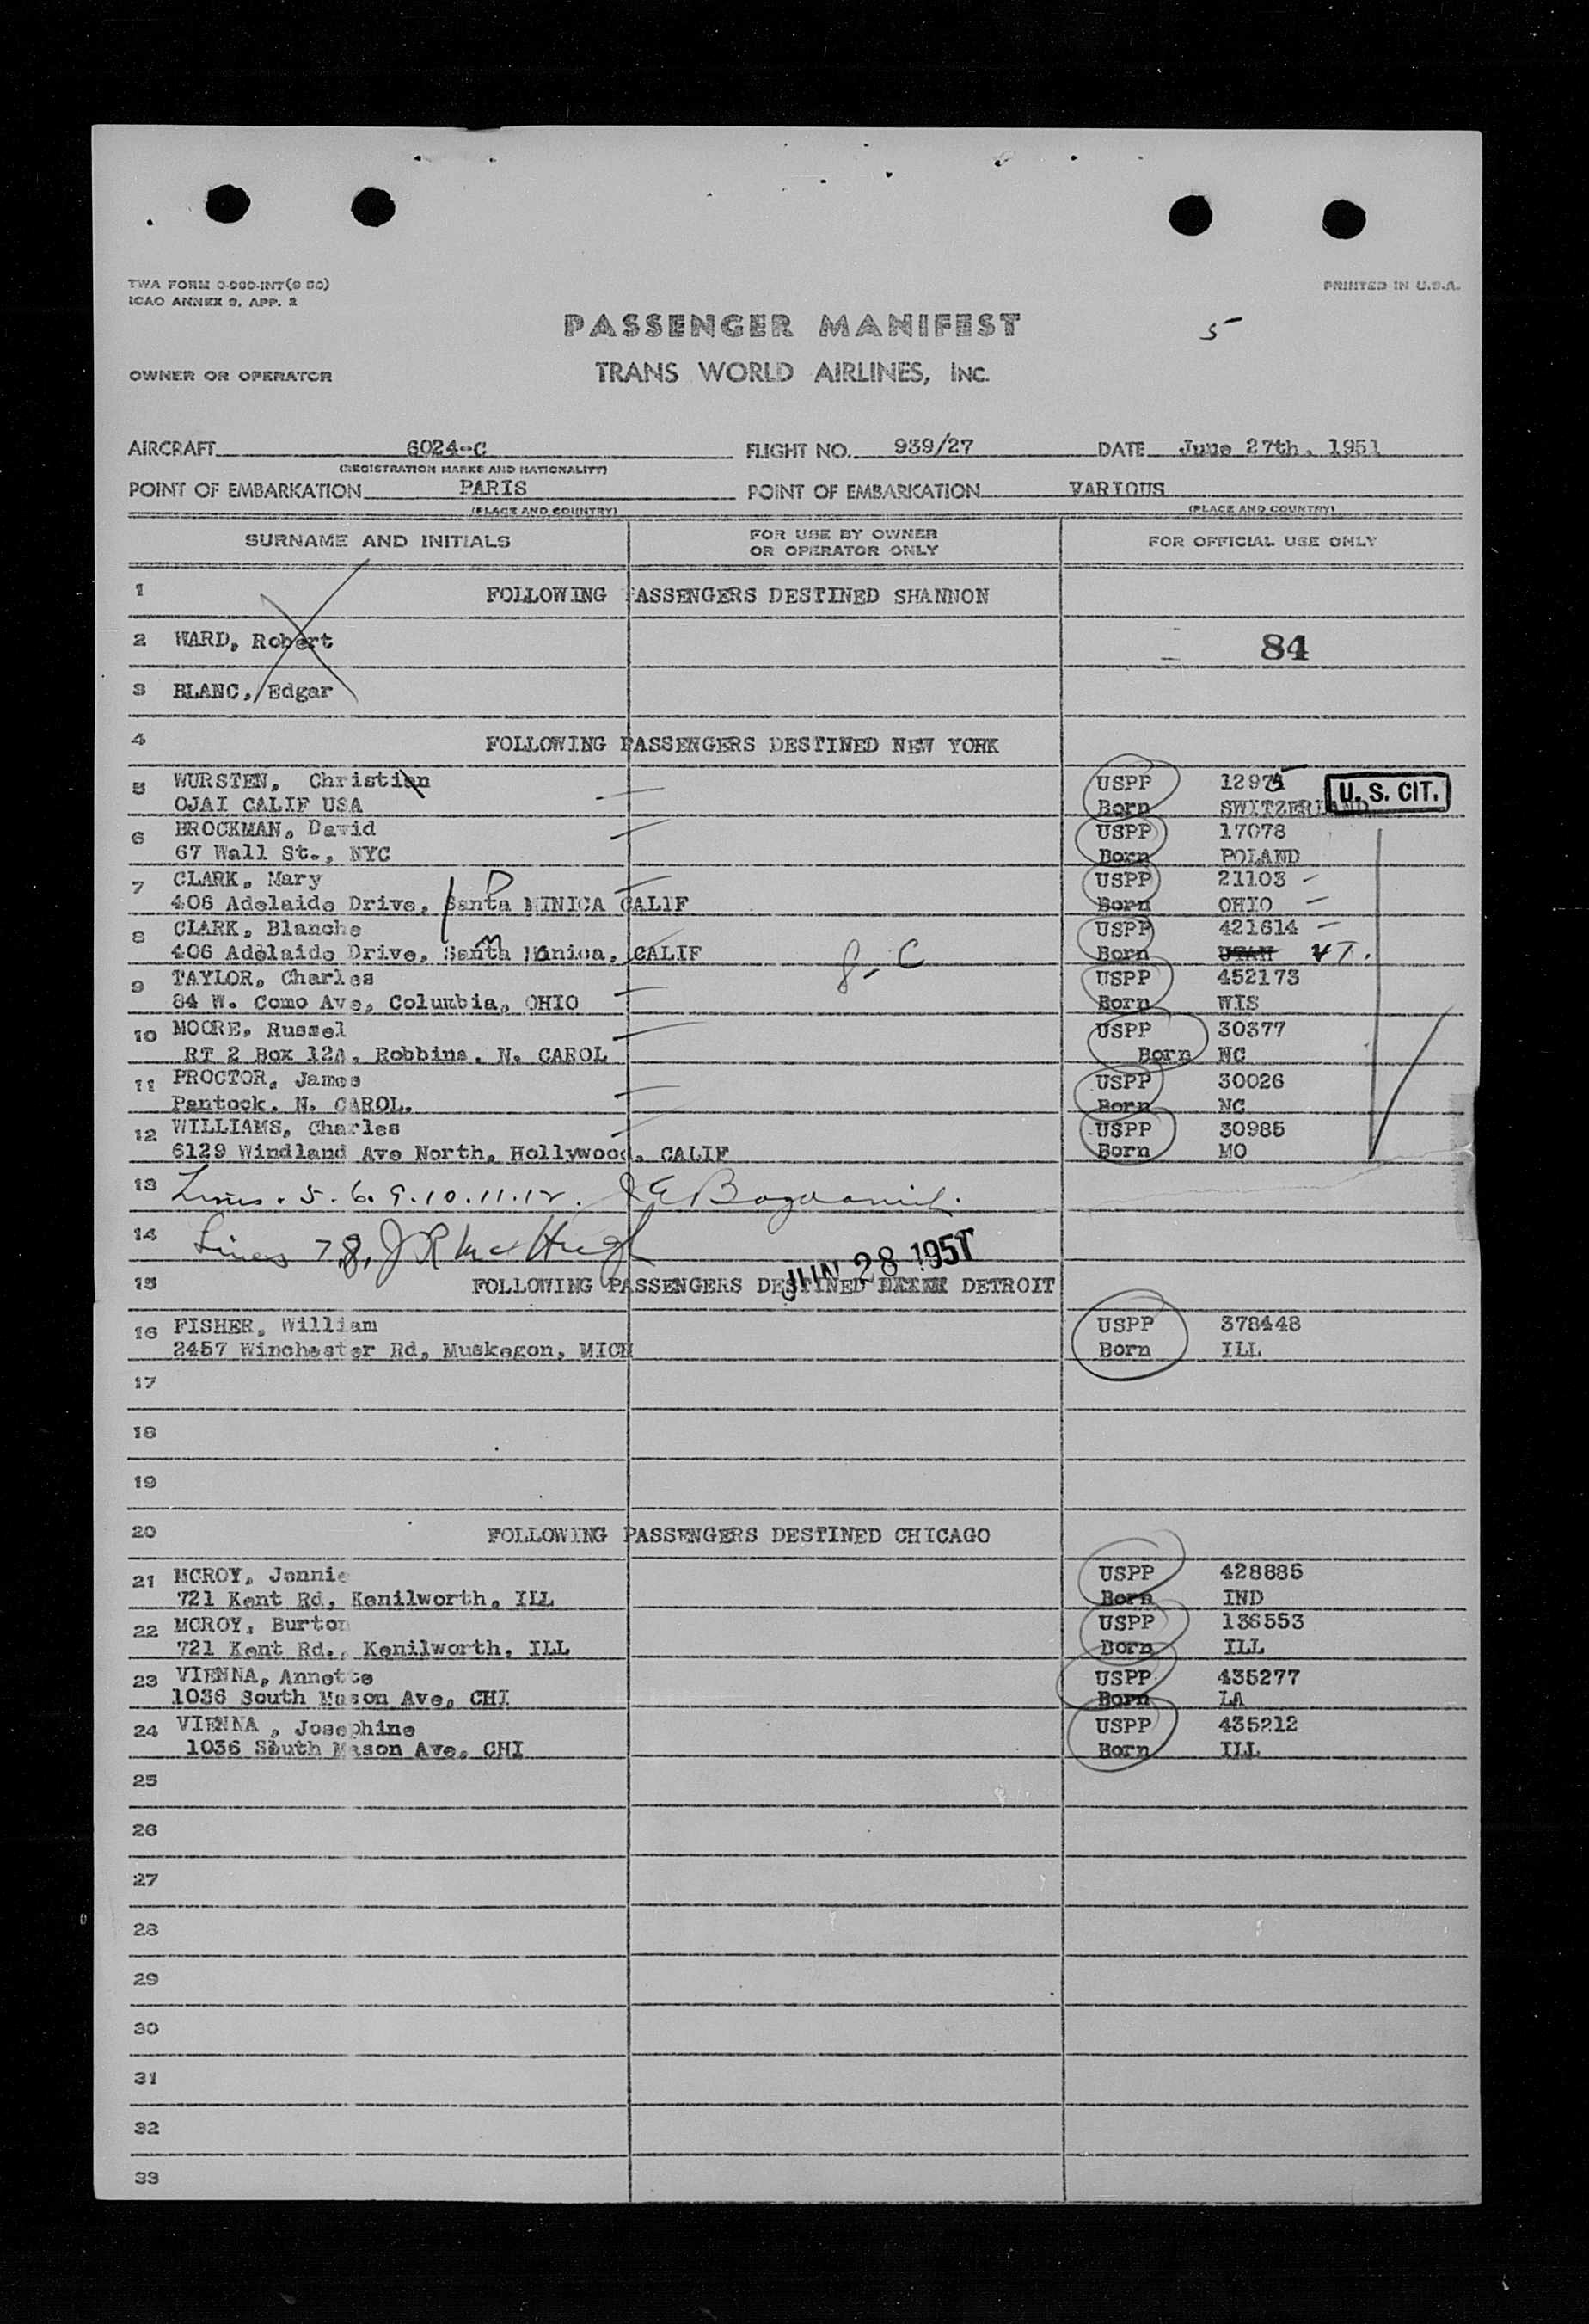 TWA FORM 0-980-INT (9 50)
ICAO ANNEX 9, APP. 2
PRINTED IN U.S.A.
PASSENGER MANIFEST
5
OWNER OR OPERATOR TRANS WORLD AIRLINES, INC.
AIRCRAFT 6024-C FLIGHT NO. 939/27 DATE June 27th, 1951
(REGISTRATION MARKS AND NATIONALITY)
POINT OF EMBARKATION PARIS POINT OF EMBARKATION VARIOUS
(PLACE AND COUNTRY) (PLACE AND COUNTRY)
SURNAME AND INITIALS FOR USE BY OWNER OR OPERATOR ONLY FOR OFFICIAL USE ONLY
1 FOLLOWING PASSENGERS DESTINED SHANNON
2 WARD, Robert 84
3 BLANC, Edgar
4 FOLLOWING PASSENGERS DESTINED NEW YORK
5 WURSTEN, Christian USPP 12975 U. S. CIT.
OJAI CALIF USA Born SWITZERLAND
6 BROCKMAN, David USPP 17078
67 Wall St., NYC Born POLAND
7 CLARK, Mary D USPP 21103
406 Adelaide Drive, Santa MINICA CALIF Born OHIO
8 CLARK, Blanche USPP 421614
406 Adelaide Drive, Santa Monica, CALIF 8-C Born UTAH VT.
9 TAYLOR, Charles USPP 452173
84 W. Como Ave, Columbia, OHIO Born WIS
10 MOORE, Russel USPP 30377
RT 2 Box 12A, Robbins, N. CAROL Born NC
11 PROCTOR, James USPP 30026
Pantock, N. CAROL. Born NC
12 WILLIAMS, Charles USPP 30985
6129 Windland Ave North, Hollywood, CALIF Born MO
13 Lines. 5. 6. 9. 10. 11. 12.
14 Lines 7, 8, J R McHugh
JUN 28 1951
15 FOLLOWING PASSENGERS DESTINED DETROIT
16 FISHER, William USPP 378448
2457 Winchester Rd, Muskegon, MICH Born ILL
17
18
19
20 FOLLOWING PASSENGERS DESTINED CHICAGO
21 MCROY, Jennie USPP 428885
721 Kent Rd, Kenilworth, ILL Born IND
22 MCROY, Burton USPP 136553
721 Kent Rd., Kenilworth, ILL Born ILL
23 VIENNA, Annette USPP 435277
1036 South Mason Ave, CHI Born LA
24 VIENNA, Josephine USPP 435212
1036 South Mason Ave, CHI Born ILL
25
26
27
28
29
30
31
32
33